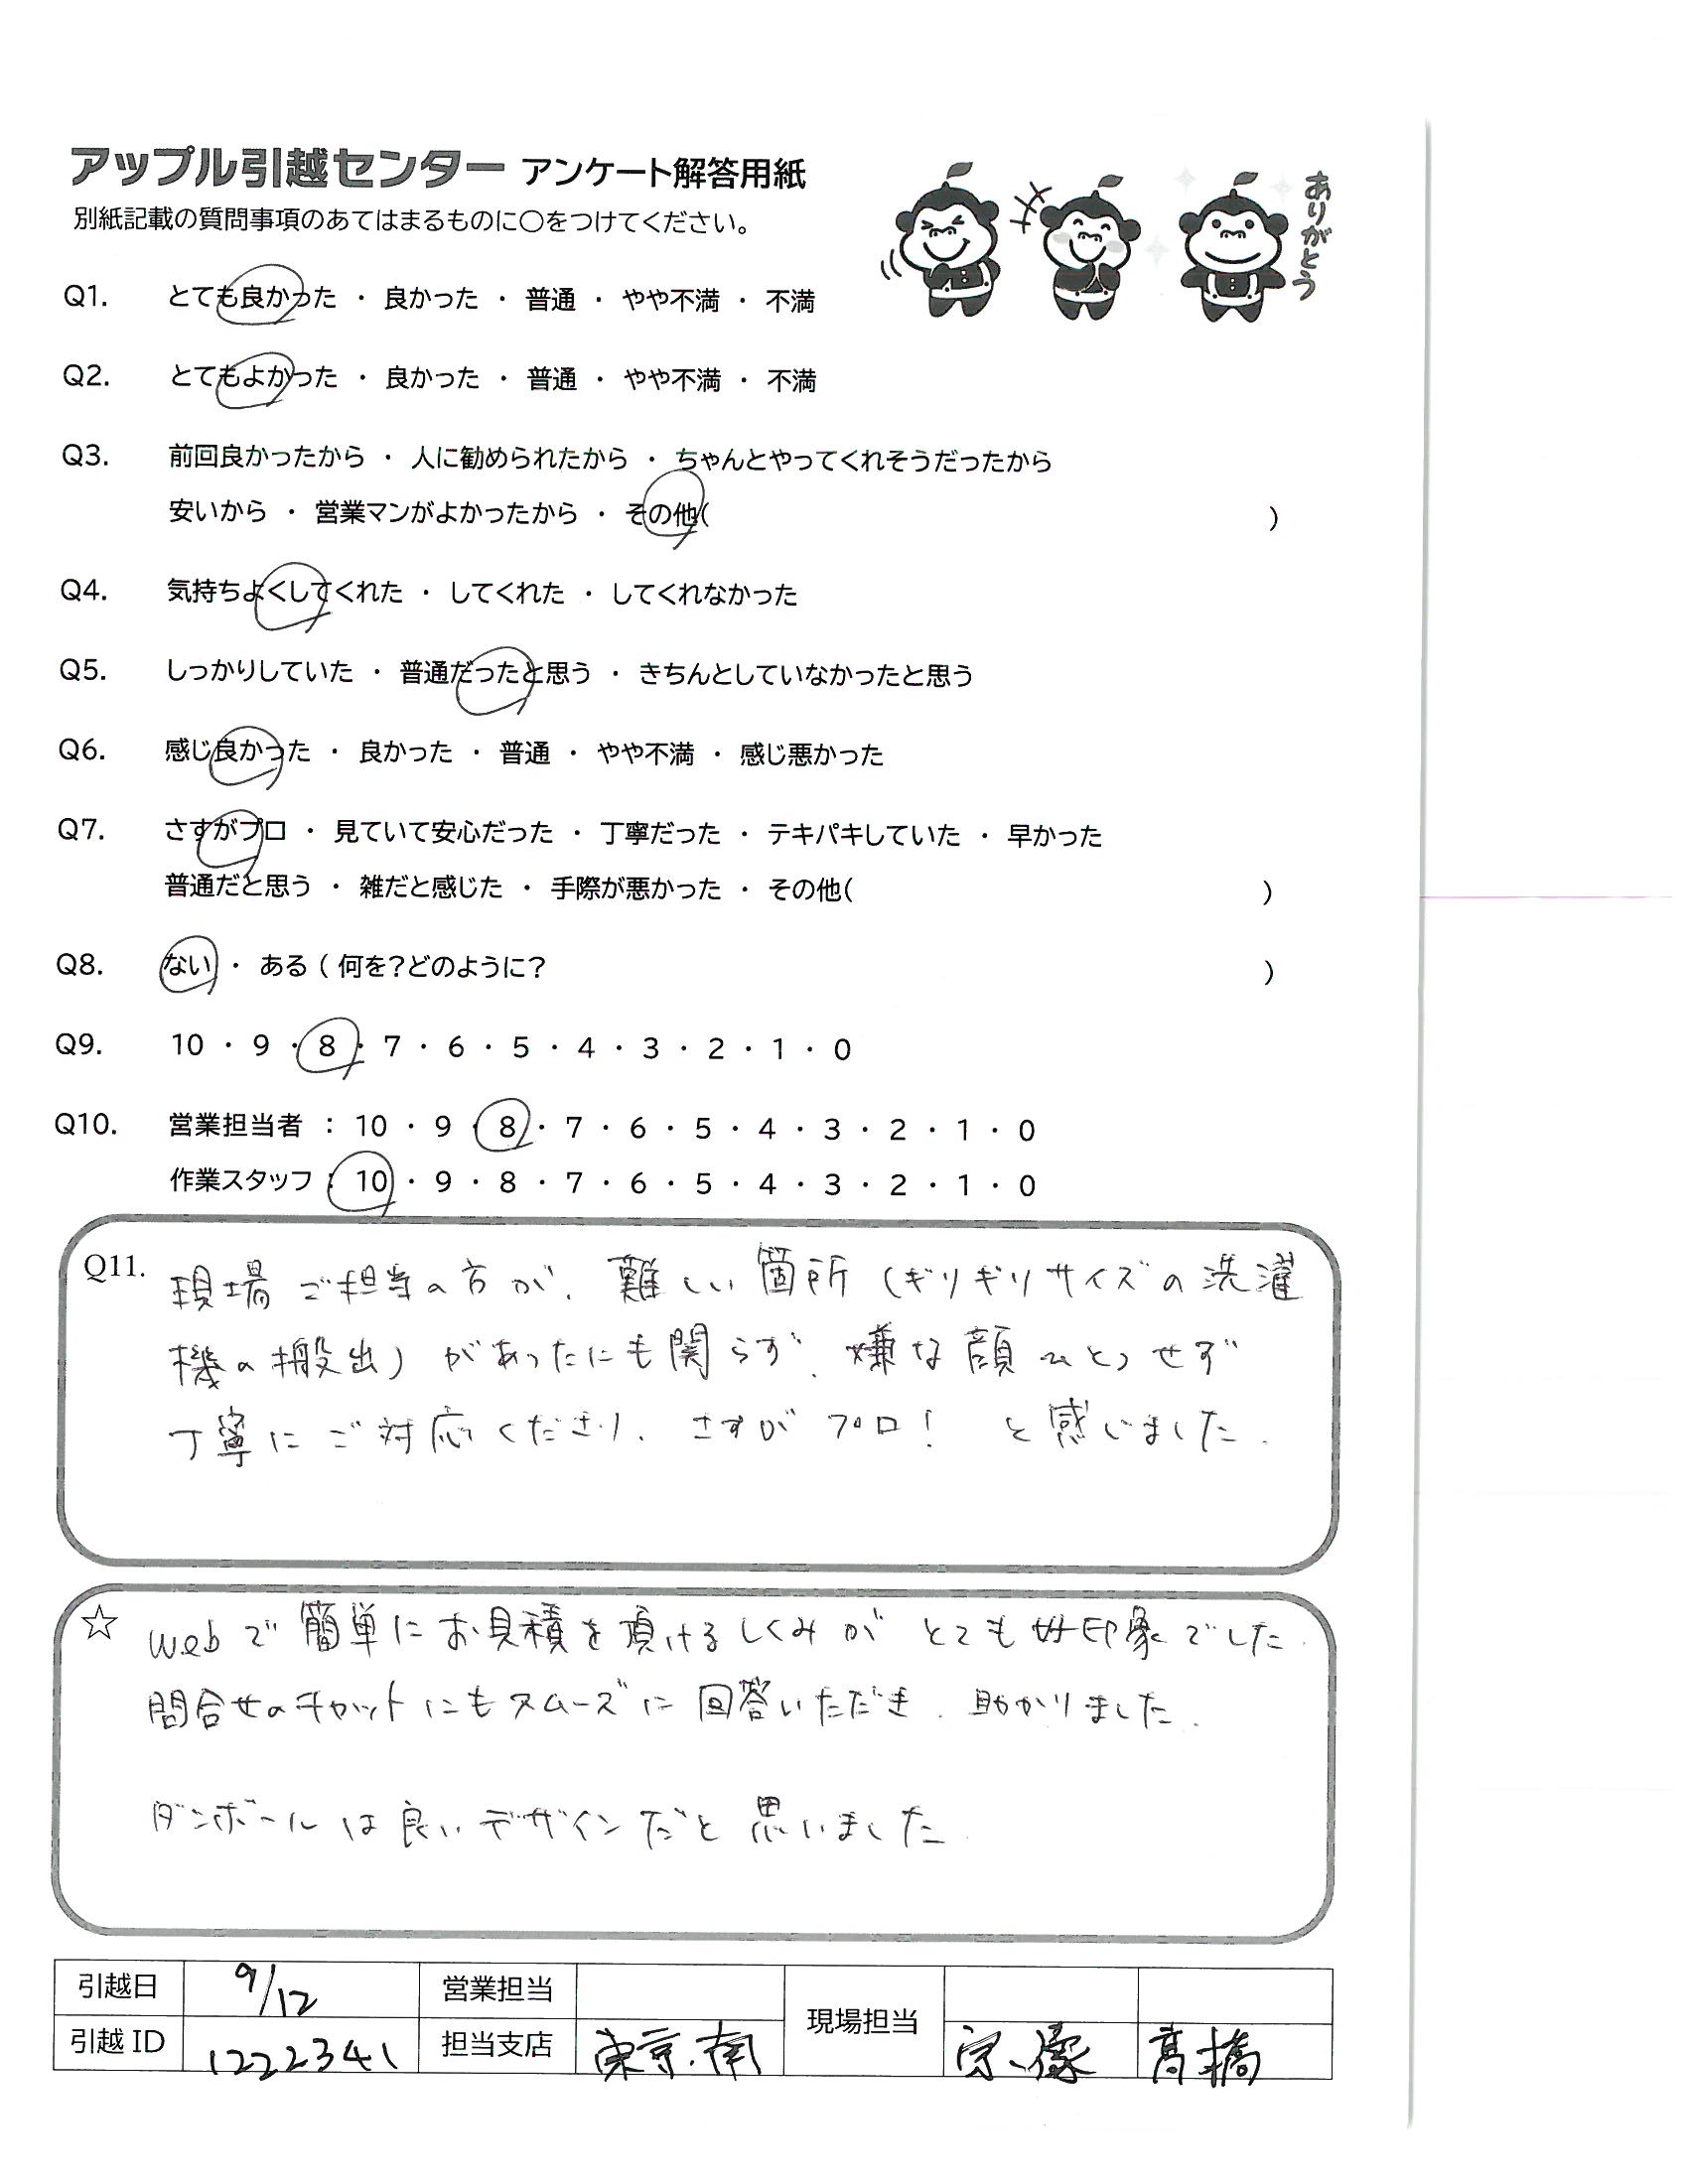 アップル引越センター アンケート解答用紙
別紙記載の質問事項のあてはまるものに○をつけてください。
ありがとう
Q1. とても良かった ・ 良かった ・ 普通 ・ やや不満 ・ 不満
Q2. とてもよかった ・ 良かった ・ 普通 ・ やや不満 ・ 不満
Q3. 前回良かったから ・ 人に勧められたから ・ ちゃんとやってくれそうだったから
安いから ・ 営業マンがよかったから ・ その他( )
Q4. 気持ちよくしてくれた ・ してくれた ・ してくれなかった
Q5. しっかりしていた ・ 普通だったと思う ・ きちんとしていなかったと思う
Q6. 感じ良かった ・ 良かった ・ 普通 ・ やや不満 ・ 感じ悪かった
Q7. さすがプロ ・ 見ていて安心だった ・ 丁寧だった ・ テキパキしていた ・ 早かった
普通だと思う ・ 雑だと感じた ・ 手際が悪かった ・ その他( )
Q8. ない ・ ある ( 何を?どのように? )
Q9. 10 ・ 9 ・ 8 ・ 7 ・ 6 ・ 5 ・ 4 ・ 3 ・ 2 ・ 1 ・ 0
Q10. 営業担当者 : 10 ・ 9 ・ 8 ・ 7 ・ 6 ・ 5 ・ 4 ・ 3 ・ 2 ・ 1 ・ 0
作業スタッフ : 10 ・ 9 ・ 8 ・ 7 ・ 6 ・ 5 ・ 4 ・ 3 ・ 2 ・ 1 ・ 0
Q11. 現場ご担当の方が、難しい箇所(ギリギリサイズの洗濯
機の搬出)があったにも関らず、嫌な顔ひとつせず
丁寧にご対応くださり、さすがプロ! と感じました。
☆ webで簡単にお見積を頂けるしくみがとても好印象でした。
問合せのチャットにもスムーズに回答いただき、助かりました。
ダンボールは良いデザインだと思いました。
引越日 9/12 営業担当 現場担当
引越 ID 1222341 担当支店 東京.南 宗像 髙橋